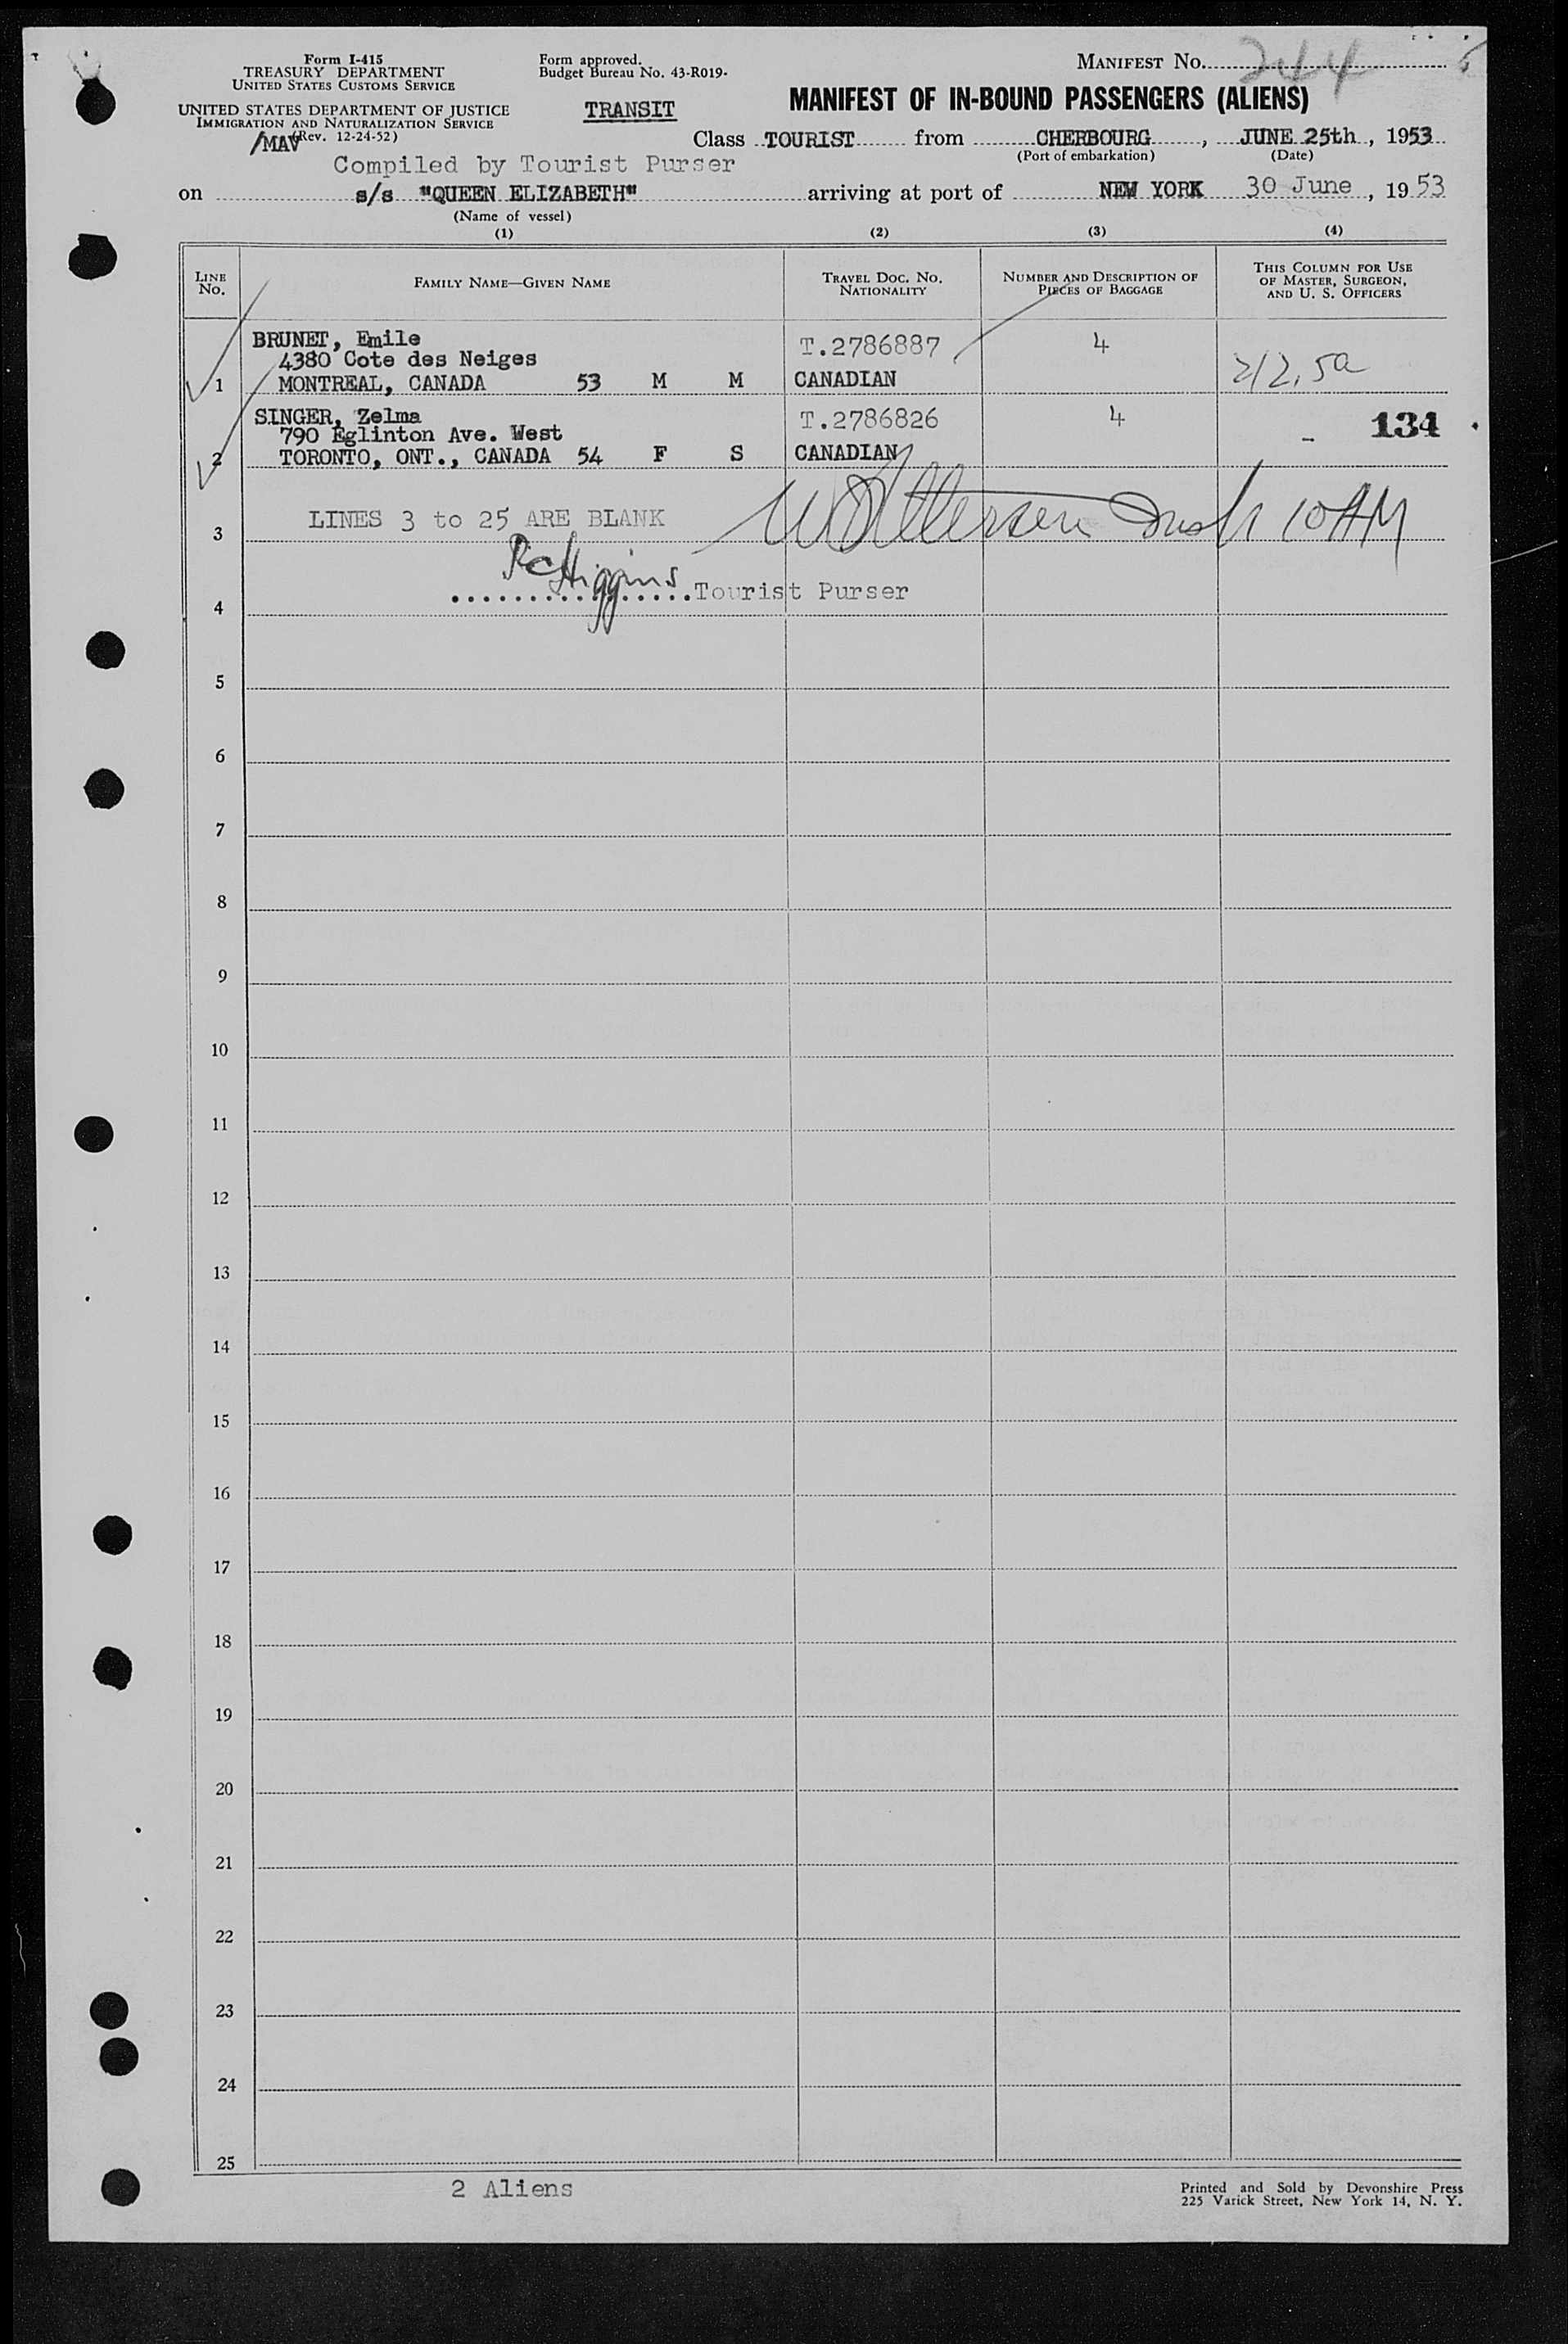 Form I-415
TREASURY DEPARTMENT
UNITED STATES CUSTOMS SERVICE
UNITED STATES DEPARTMENT OF JUSTICE
IMMIGRATION AND NATURALIZATION SERVICE
(Rev. 12-24-52)
/MAV
Form approved.
Budget Bureau No. 43-R019-
TRANSIT
MANIFEST NO. 244
MANIFEST OF IN-BOUND PASSENGERS (ALIENS)
Class TOURIST from CHERBOURG, JUNE 25th, 1953
(Port of embarkation) (Date)
Compiled by Tourist Purser
on s/s "QUEEN ELIZABETH" arriving at port of NEW YORK 30 June, 1953
(Name of vessel)
(1) (2) (3) (4)
LINE No. FAMILY NAME—GIVEN NAME TRAVEL DOC. NO. NATIONALITY NUMBER AND DESCRIPTION OF PIECES OF BAGGAGE THIS COLUMN FOR USE OF MASTER, SURGEON, AND U. S. OFFICERS
BRUNET, Emile T.2786887 4
4380 Cote des Neiges 212.5a
1 MONTREAL, CANADA 53 M M CANADIAN
SINGER, Zelma T.2786826 4 - 134
790 Eglinton Ave. West
2 TORONTO, ONT., CANADA 54 F S CANADIAN
LINES 3 to 25 ARE BLANK 10 AM
3
RCHiggins
................Tourist Purser
4
5
6
7
8
9
10
11
12
13
14
15
16
17
18
19
20
21
22
23
24
25
2 Aliens
Printed and Sold by Devonshire Press
225 Varick Street, New York 14, N. Y.